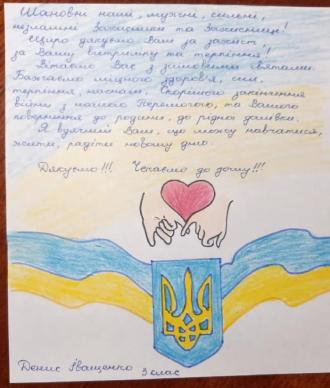 Шановні наші, мужні, сильні,
незламні Захисники та Захисниці!
Щиро дякуємо Вам за захист,
за Вашу витримку та терпіння!
Вітаємо Вас з зимовими святами.
Бажаємо міцного здоров'я, сил,
терпіння, наснаги. Скорішого закінчення
війни з нашою Перемогою, та Вашого
повернення до родини, до рідної домівки.
Я вдячний Вам, що можу навчатися,
жити, радіти новому дню.
Дякуємо!!! Чекаємо до дому!!!
Денис Іващенко 3 клас